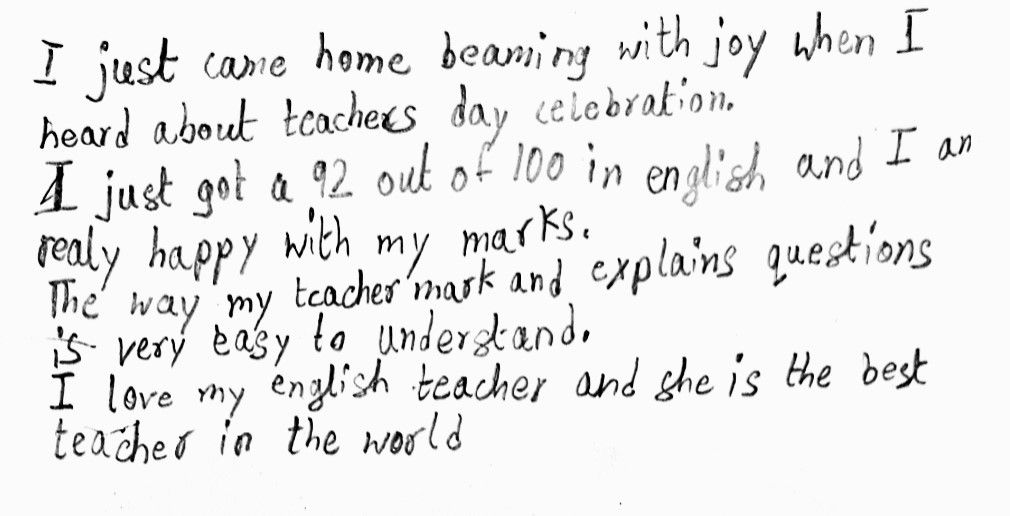 I just came home beaming with joy when I
heard about teachers day celebration.
I just got a 92 out of 100 in english and I an
realy happy with my marks.
The way my teacher mark and explains questions
is very easy to understand.
I love my english teacher and she is the best
teacher in the world